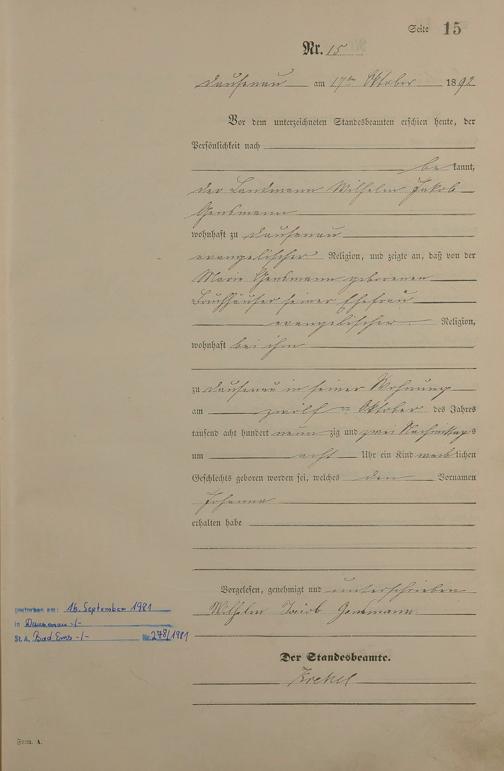 Seite 15
Nr. 15
Dausenau am 17ten Oktober 1892
Vor dem unterzeichneten Standesbeamten erschien heute, der
Persönlichkeit nach
bekannt,
der Landmann Wilhelm Jakob
Gensmann
wohnhaft zu Dausenau
evangelischer Religion, und zeigte an, daß von der
Marie Gensmann geborenen
seiner Ehefrau
evangelischer Religion,
wohnhaft bei ihm
zu Dausenau in seiner Wohnung
am zwölf ten Oktober des Jahres
tausend acht hundert neunzig und zwei Nachmittags
um acht Uhr ein Kind weiblichen
Geschlechts geboren worden sei, welches den Vornamen
Johanna
erhalten habe
Vorgelesen, genehmigt und unterschrieben
Wilhelm Jacob Gensmann
gestorben am: 16. September 1981
in Dausenau -/-
St. A. Bad Ems -/- Nr. 278/1981
Der Standesbeamte.
Form. A.